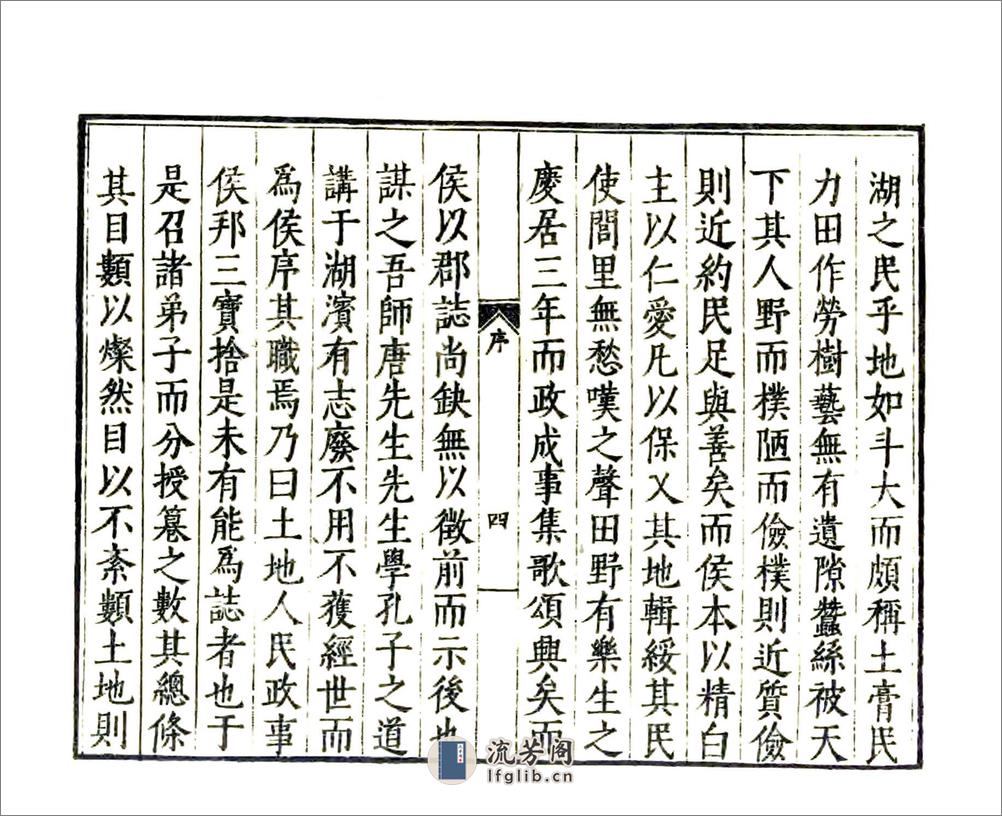 湖之民乎地如斗大而頗稱土膏民
力田作勞樹藝無有遺隙蠶絲被天
下其人野而樸陋而儉樸則近質儉
則近約民足與善矣而侯本以精白
主以仁愛凡以保乂其地輯綏其民
使閭里無愁嘆之聲田野有樂生之
慶居三年而政成事集歌頌興矣而
序
四
侯以郡誌尚缺無以徵前而示後也
謀之吾師唐先生先生學孔子之道
講于湖濱有志廢不用不獲經世而
爲侯序其職焉乃曰土地人民政事
侯邦三寶捨是未有能爲誌者也于
是召諸弟子而分授纂之數其總條
其目數以燦然目以不紊數土地則
流芳阁
lfglib.cn